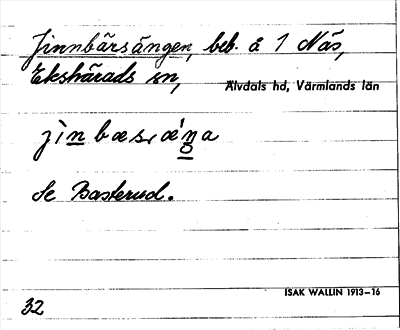 Jinnbärsängen, beb. å 1 Näs,
Ekshärads sn,
Älvdals hd, Värmlands län
jìnbæsıǽŋa
Se Basterud.
ISAK WALLIN 1913–16
32